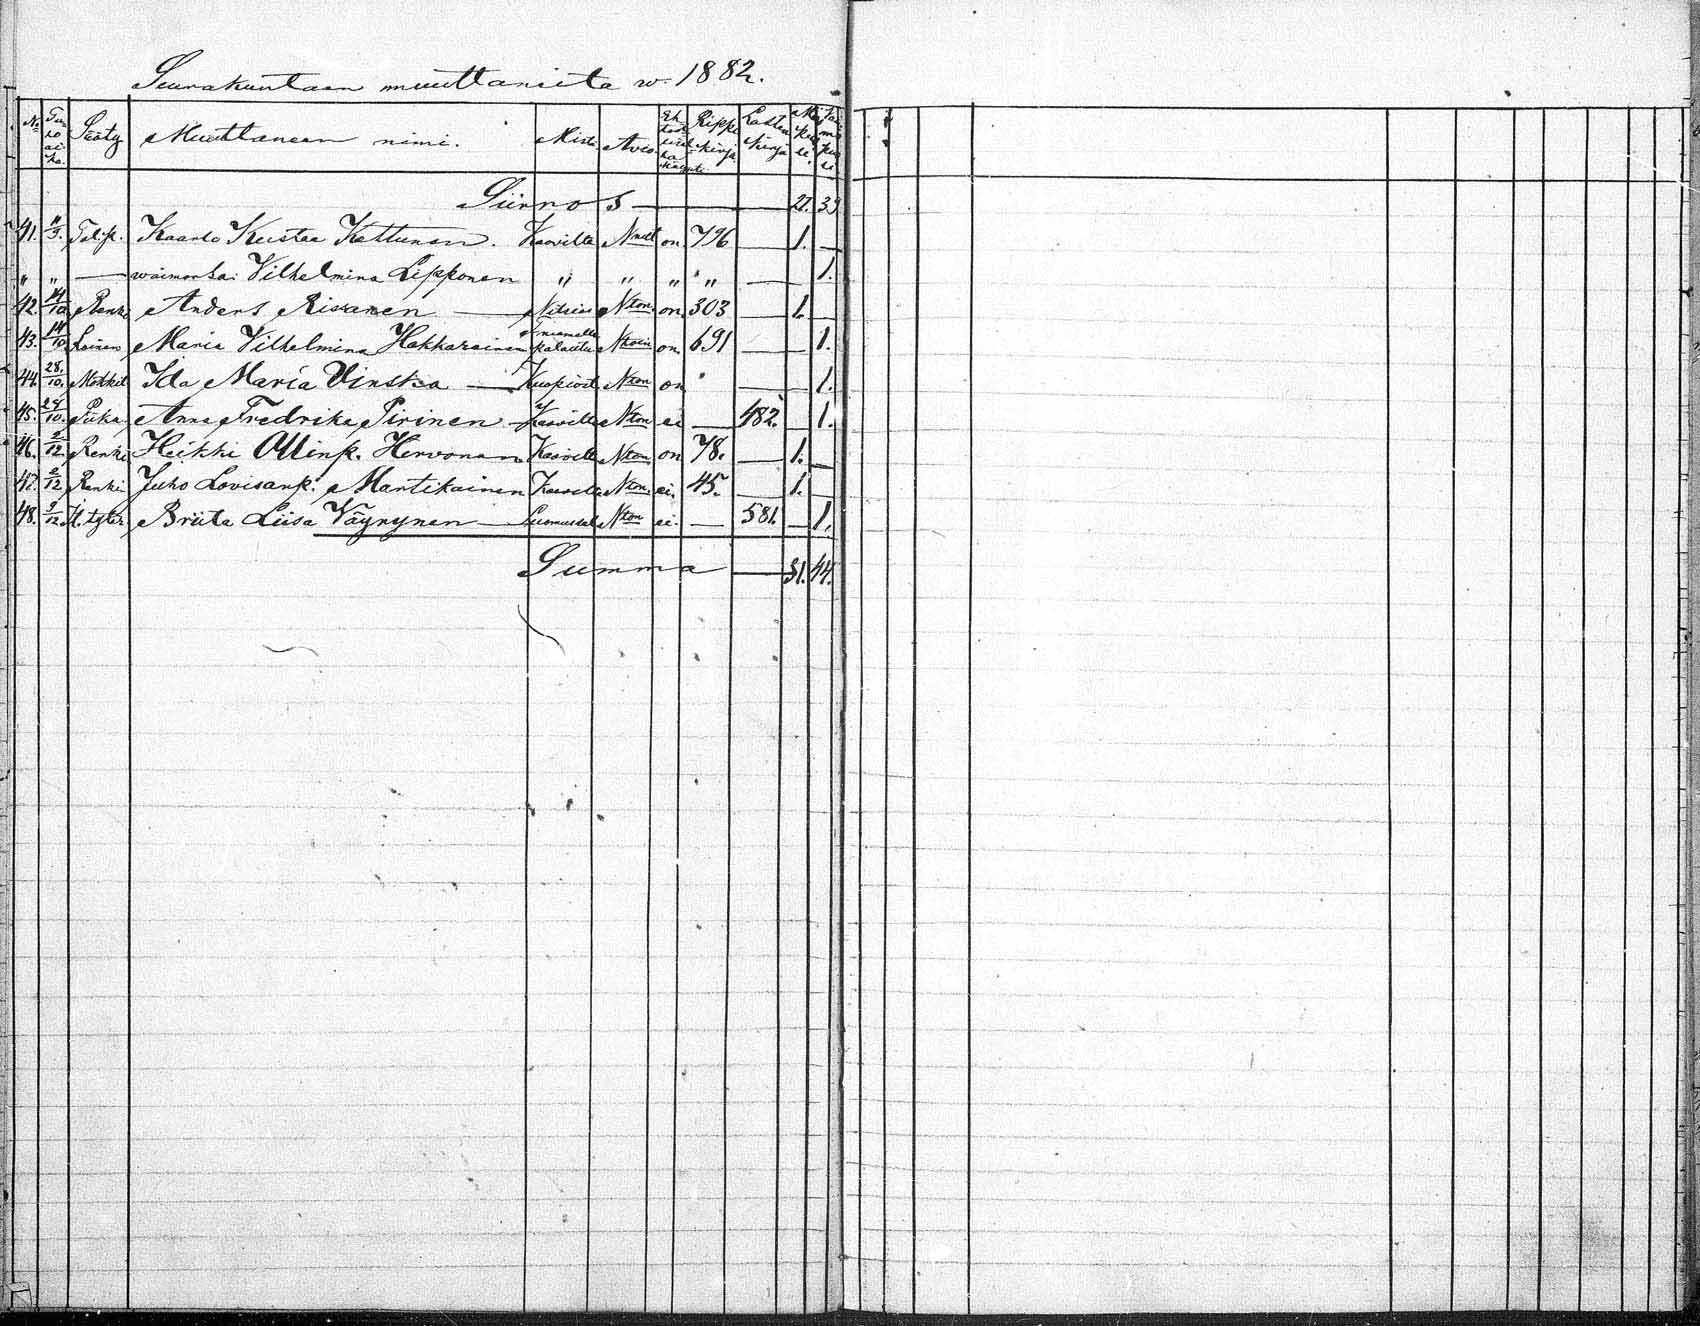 Seurakuntaan muuttaneita w. 1882.
No Tuloaika. Sääty Muuttaneen nimi. Mistä Avio. Rippikirja Lastenkirja
Siirros — 27. 39
41. 11/9. Kaarlo Kustaa Kettunen. Kaavilta on 796 — 1. —
" " — waimonsa Vilhelmina Lipponen " " " " — 1.
42. 14/10 Renki Anders Rissanen — Nilsiä Nton on 303 — 1.
43. 14/10. Loinen Maria Vilhelmina Hakkarainen palautu on 691 — 1.
44. 28/10. Ida Maria Vinska — Kuopiost Nton on — 1.
45. 29/10. Piika Anna Fredrika Pirinen Kaavilta Nton ei — 482. — 1.
46. 2/12. Renki Heikki Ollinp. Hervonen Kaavilta Nton on 78. — 1. —
47. 2/12 Renki Juho Lovisanp. Martikainen Kaavilta Nton ei. 45. — 1.
48. 9/12 Briita Liisa Väyrynen — Nton ei. — 581. — 1.
Summa — 31. 44.